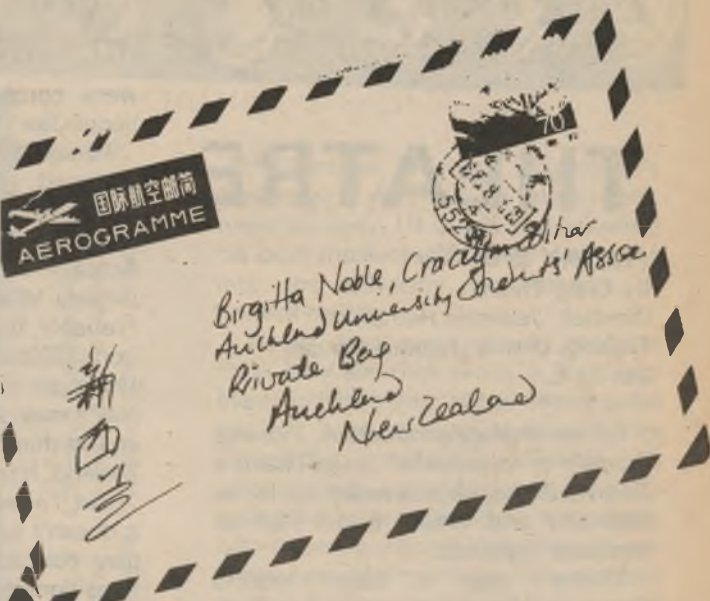 THEATRE
国际航空邮简
AEROGRAMME
70
Birgitta Noble, Craccum Editor
Auckland University Students Assoc
Private Bag
Auckland
New Zealand
新西兰